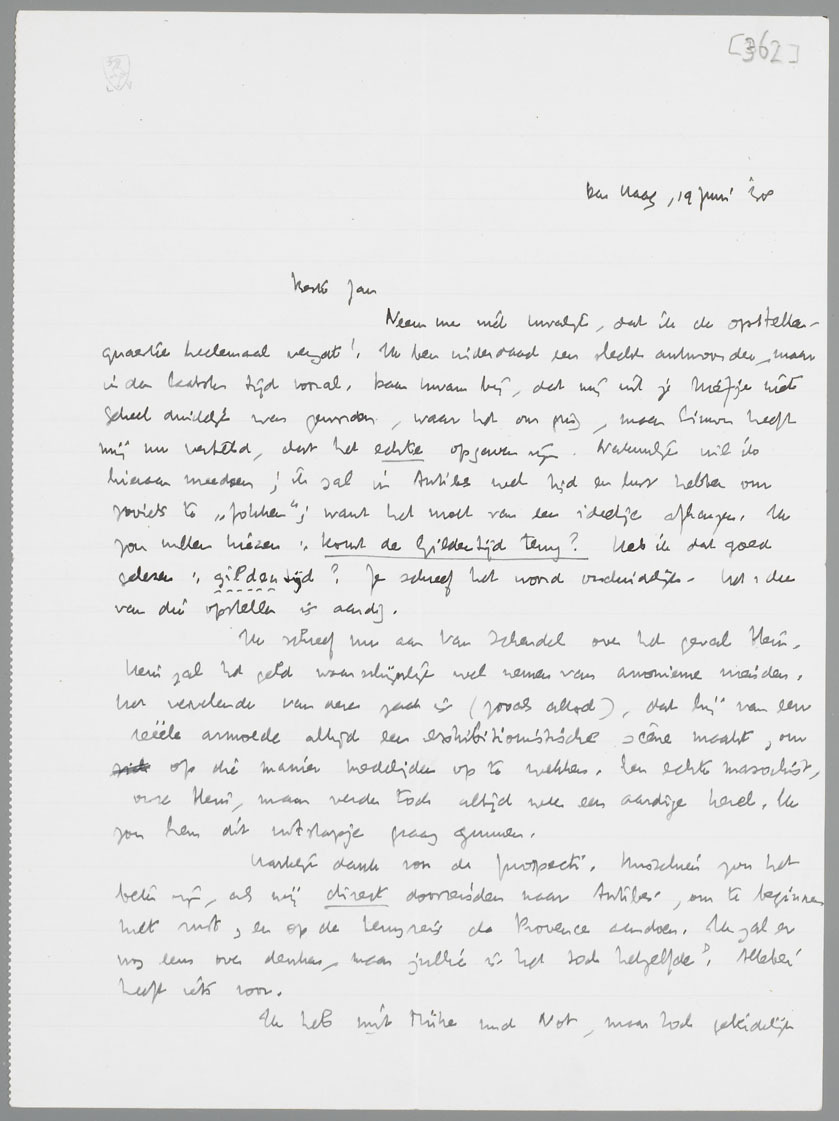 [362]
Den Haag, 19 Juni '38
Beste Jan
Neem me niet kwalijk, dat ik de opstellen-
quaestie heelemaal vergat! Ik ben inderdaad een slecht antwoorder, maar
in den laatsten tijd vooral. Daar kwam bij, dat mij uit je briefje niet
geheel duidelijk was geworden, waar het om ging, maar Simon heeft
mij nu verteld, dat het echte opgaven zijn. Natuurlijk wil ik
hieraan meedoen; ik zal in Antibes wel tijd en lust hebben om
zooiets te „fokken"; want het moet van een ideetje afhangen. Ik
zou willen kiezen: Komt de Gildentijd terug? Heb ik dat goed
gelezen: gildentijd? Je schreef het woord onduidelijk. Het idee
van die opstellen is aardig.
Ik schreef nu aan Van Schendel over het geval Hein.
Hein zal het geld waarschijnlijk wel nemen van anonieme
Het vervelende van deze zaak is (zooals altijd), dat hij van een
reëele armoede altijd een exhibitionistische scène maakt, om
op die manier medelijden op te wekken. Een echte masochist,
onze Hein, maar verder toch altijd weer een aardige kerel. Ik
zou hem dit uitstapje graag gunnen.
Hartelijk dank voor de prospecti. Misschien zou het
beter zijn, als wij direct doorreisden naar Antibes, om te beginnen
met rust, en op de terugreis de Provence aandoen. Ik zal er
nog eens over denken, maar jullie is het toch hetzelfde? Allebei
heeft iets voor.
Ik heb mit Mühe und Not, maar toch geleidelijk